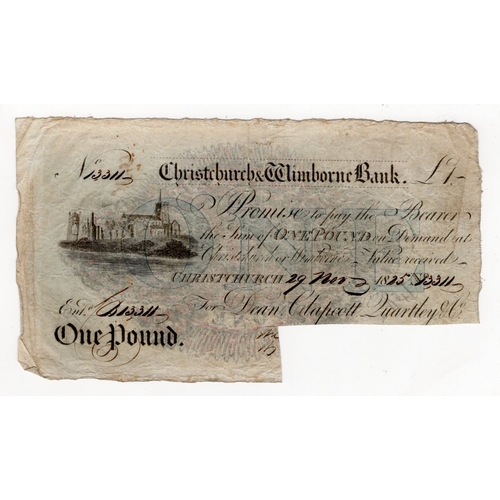 No. 13311 Christchurch & Wimborne Bank. £1.-
I Promise to pay the Bearer
the Sum of ONE POUND on Demand at
Christchurch or Wimborne Value received
CHRISTCHURCH 29 Nov 1825 13311
Entd. 13311 For Dean, Clapcott, Quartley & Co.
One Pound.